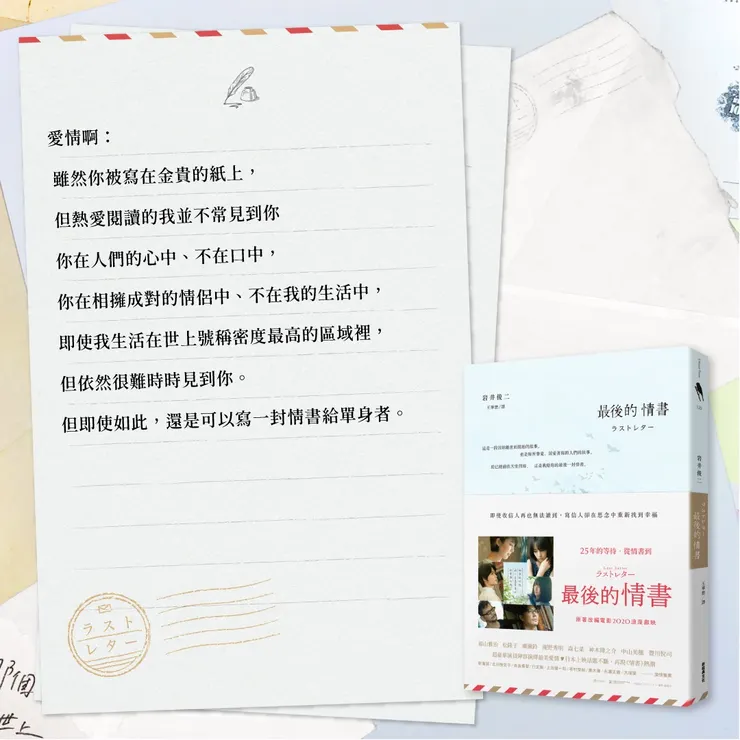 愛情啊：
雖然你被寫在金貴的紙上，
但熱愛閱讀的我並不常見到你
你在人們的心中、不在口中，
你在相擁成對的情侶中、不在我的生活中，
即使我生活在世上號稱密度最高的區域裡，
但依然很難時時見到你。
但即使如此，還是可以寫一封情書給單身者。
ラスト
レター
那個
世上
岩井俊二
王華懋/譯
最後的 情書
ラストレター
即使收信人再也無法讀到，寫信人卻在思念中重新找到幸福
25年的等待，從情書到
ラストレター
最後的情書
原著改編電影2020浪漫獻映
岩井俊二
最後的情書
王華懋 譯